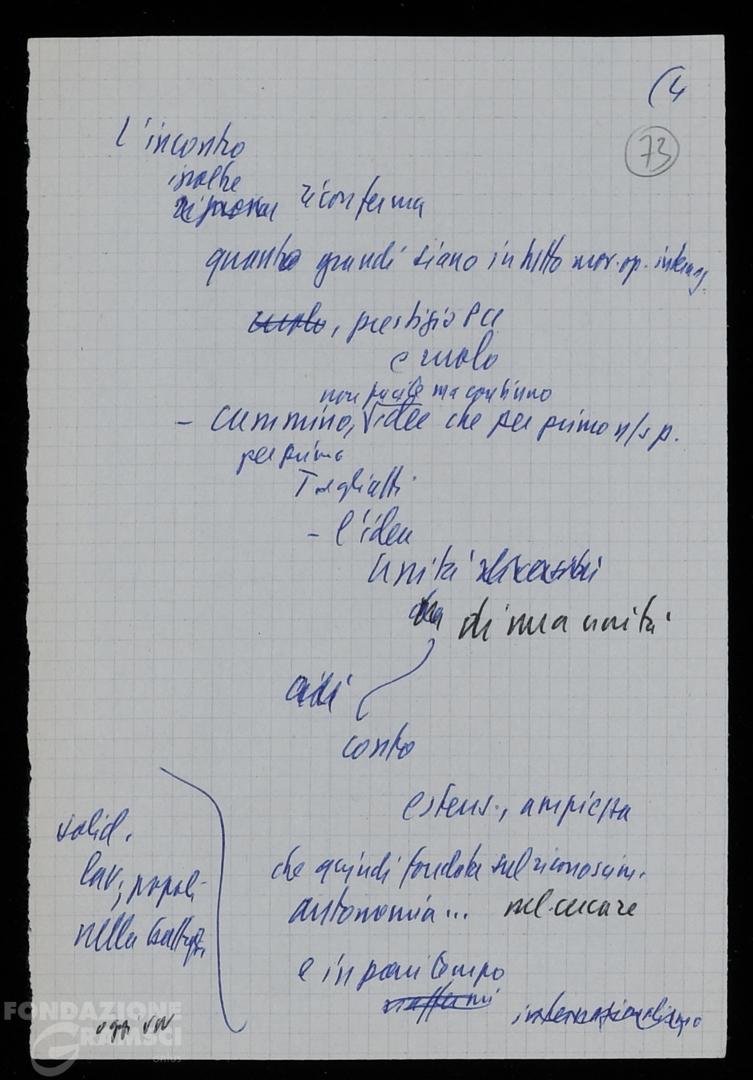 (4
73
L'incontro
inoltre
riconferma
quanto grandi siano in tutto mov. op. internaz.
ruolo, prestigio PCI
e ruolo
non facile ma continuo
- cammino, idee che per primo n/s p.
per primo
Togliatti
- l'idea
Unità
di una unità
conto
estens., ampiezza
che quindi fondata sul riconoscim.
autonomia... nel cercare
e in pari tempo
riaffermi internazionalismo
solid.
lav; popoli
nella battagl.
oggi
FONDAZIONE
GRAMSCI
onlus